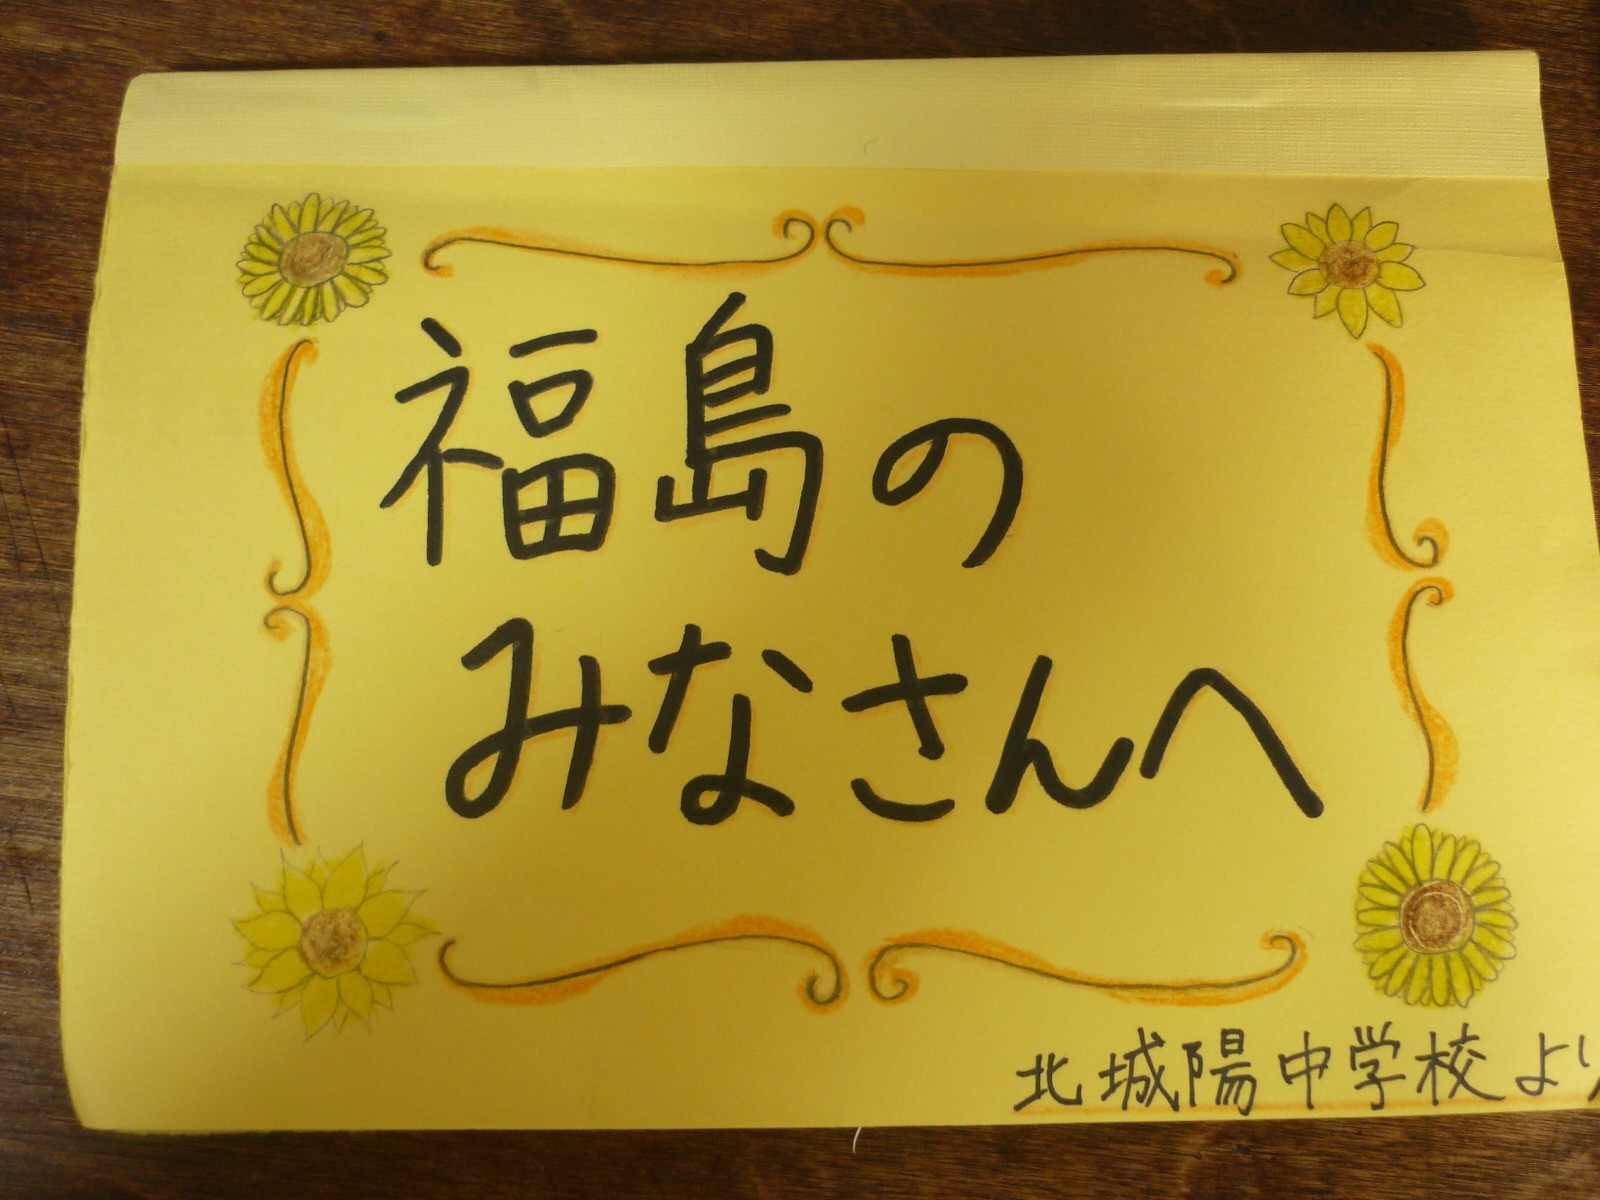 福島の
みなさんへ
北城陽中学校より